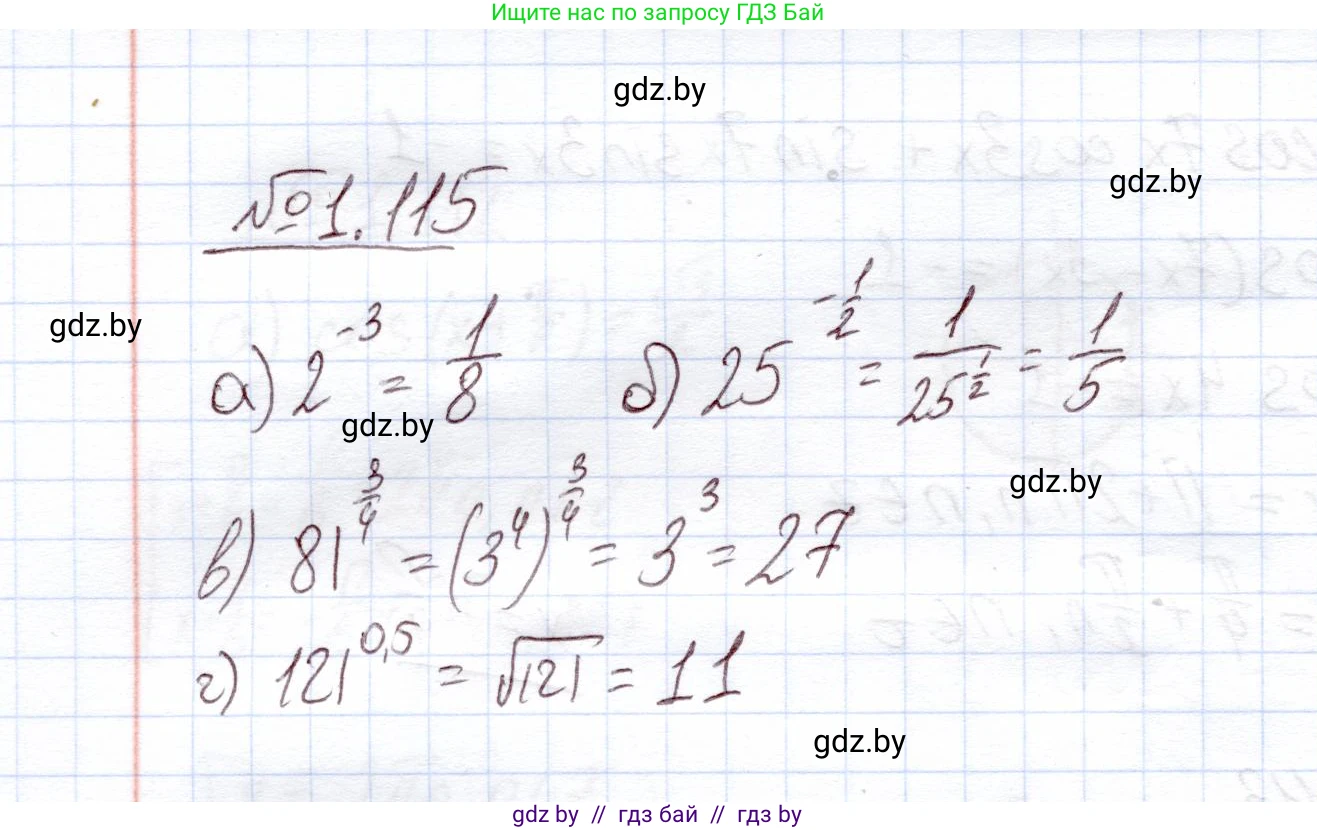 Ищите нас по запросу ГДЗ Бай
gdz.by
gdz.by
№1.115
gdz.by
а) 2^{-3} = \frac{1}{8} б) 25^{-\frac{1}{2}} = \frac{1}{25^{\frac{1}{2}}} = \frac{1}{5}
gdz.by
gdz.by
в) 81^{\frac{3}{4}} = (3^4)^{\frac{3}{4}} = 3^3 = 27
г) 121^{0,5} = \sqrt{121} = 11
gdz.by
gdz by // гдз бай // гдз by